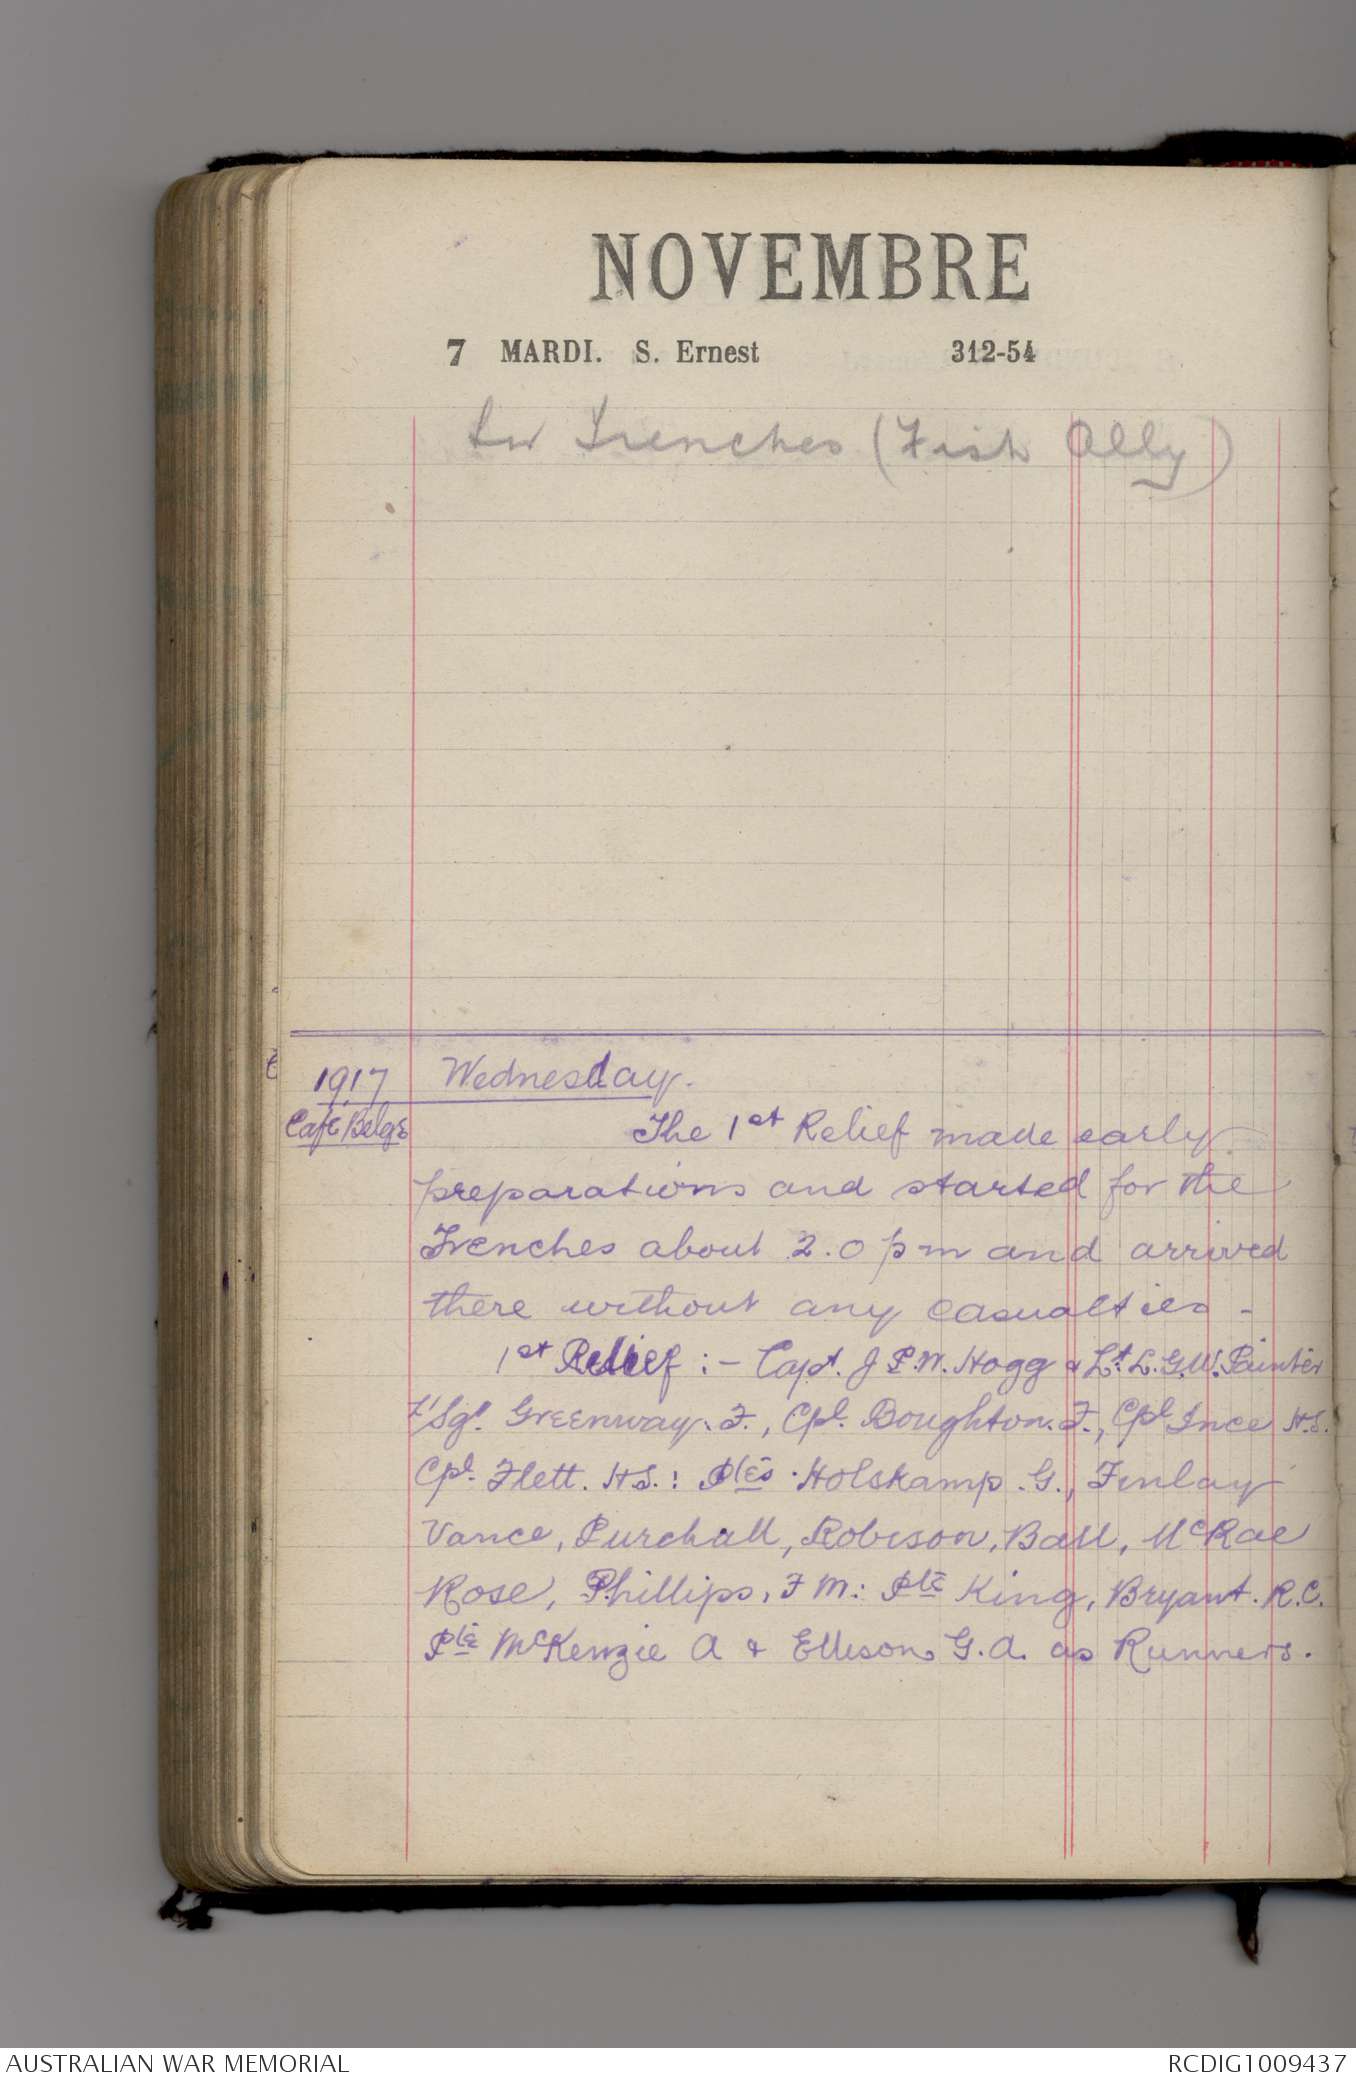 NOVEMBRE
7 MARDI. S. Ernest 312-54
In Trenches (Fish Ally)
1917 Wednesday.
Café Belge
The 1st Relief made early
preparations and started for the
Trenches about 2.0 pm and arrived
there without any casualties -
1st Relief :- Capt. J P.W. Hogg & Lt. L.G.W. Painter
Sgt. Greenway. F., Cpl. Boughton. F., Cpl Ince H.S.
Cpl. Flett. H.S.: Ptes. Holskamp. G., Finlay
Vance, Purchall, Robison, Ball, McRae
Rose, Phillips, F M: Pte King, Bryant. R.C.
Pte McKenzie A & Ellison G.A. as Runners.
AUSTRALIAN WAR MEMORIAL
RCDIG1009437